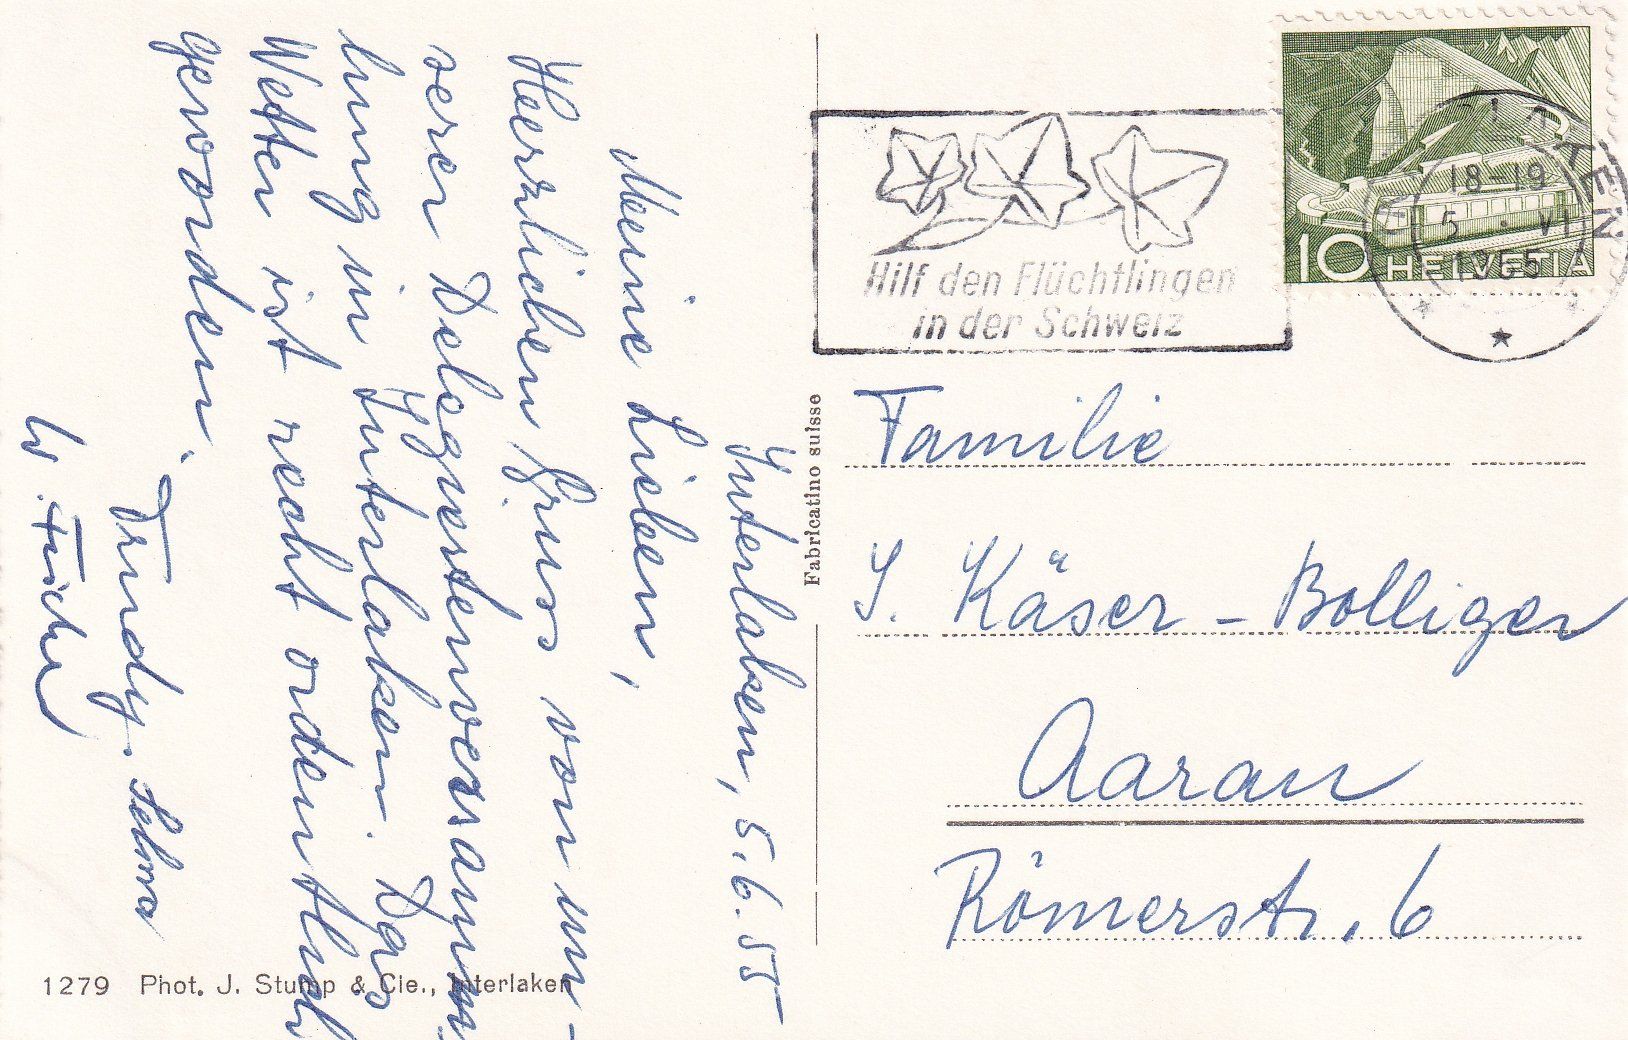 Interlaken, 5.6.55
Meine Lieben,
Herzlichen Gruss von un-
serer Delegiertenversamm-
lung in Interlaken. Das
Wetter ist recht ordentlich
geworden.
Trudy. Selma
W.
Fabricatino suisse
1279 Phot. J. Stump & Cie., Interlaken
Hilf den Flüchtlingen
in der Schweiz
10 HELVETIA
INTERLAKEN
18-19
5. VI
1955
Familie
S. Käser - Bolliger
Aarau
Römerstr. 6